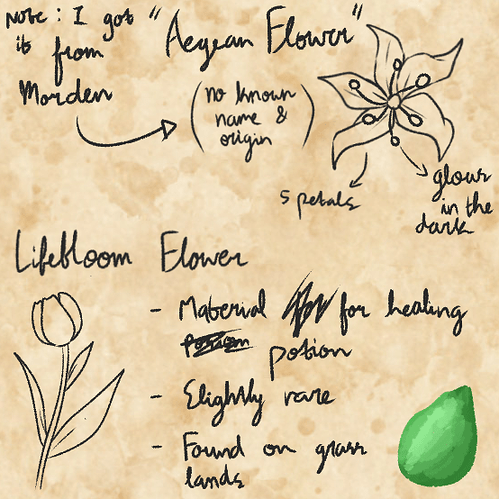 Note: I got
it from
Morden
"Aegean Flower"
(no known
name &
origin)
5 petals
glows
in the
dark
Lifebloom Flower
- Material for healing
potion
- Slightly rare
- Found on grass
lands